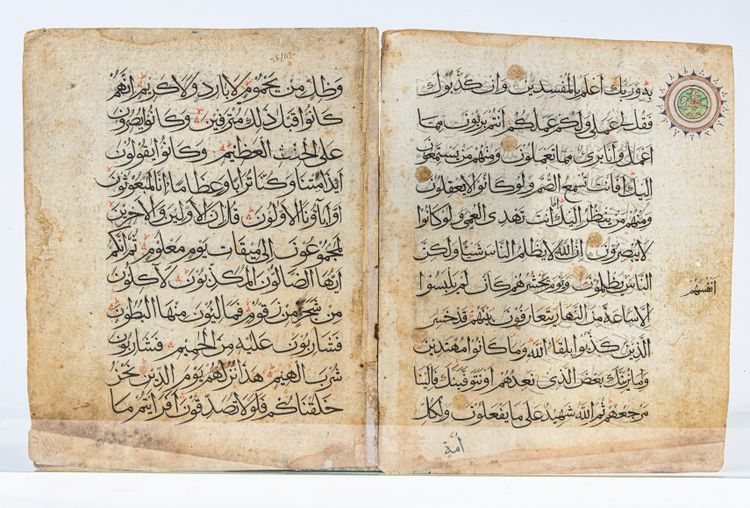 به وربك أعلم بالمفسدين وان كذبوك
فقل لي عملي ولكم عملكم أنتم بريئون مما
أعمل وأنا بريء مما تعملون ومنهم من يستمعون
اليك أفأنت تسمع الصم ولو كانوا لا يعقلون
ومنهم من ينظر اليك أفأنت تهدي العمي ولو كانوا
لا يبصرون ان الله لا يظلم الناس شيأ ولكن
الناس يظلمون ويوم يحشرهم كأن لم يلبثوا
انفسهم
الا ساعة من النهار يتعارفون بينهم قد خسر
الذين كذبوا بلقاء الله وما كانوا مهتدين
واما نرينك بعض الذي نعدهم أو نتوفينك فالينا
مرجعهم ثم الله شهيد على ما يفعلون ولكل
أمة
وظل من يحموم لا بارد ولا كريم انهم
كانوا قبل ذلك مترفين وكانوا يصرون
على الحنث العظيم وكانوا يقولون
أيذا متنا وكنا ترابا وعظاما انا لمبعوثون
أو اباؤنا الأولون قل ان الأولين والاخرين
لمجموعون الى ميقات يوم معلوم ثم انكم
ايها الضالون المكذبون لاكلون
من شجر من زقوم فمالئون منها البطون
فشاربون عليه من الحميم فشاربون
شرب الهيم هذا نزلهم يوم الدين نحن
خلقناكم فلولا تصدقون افرأيتم ما